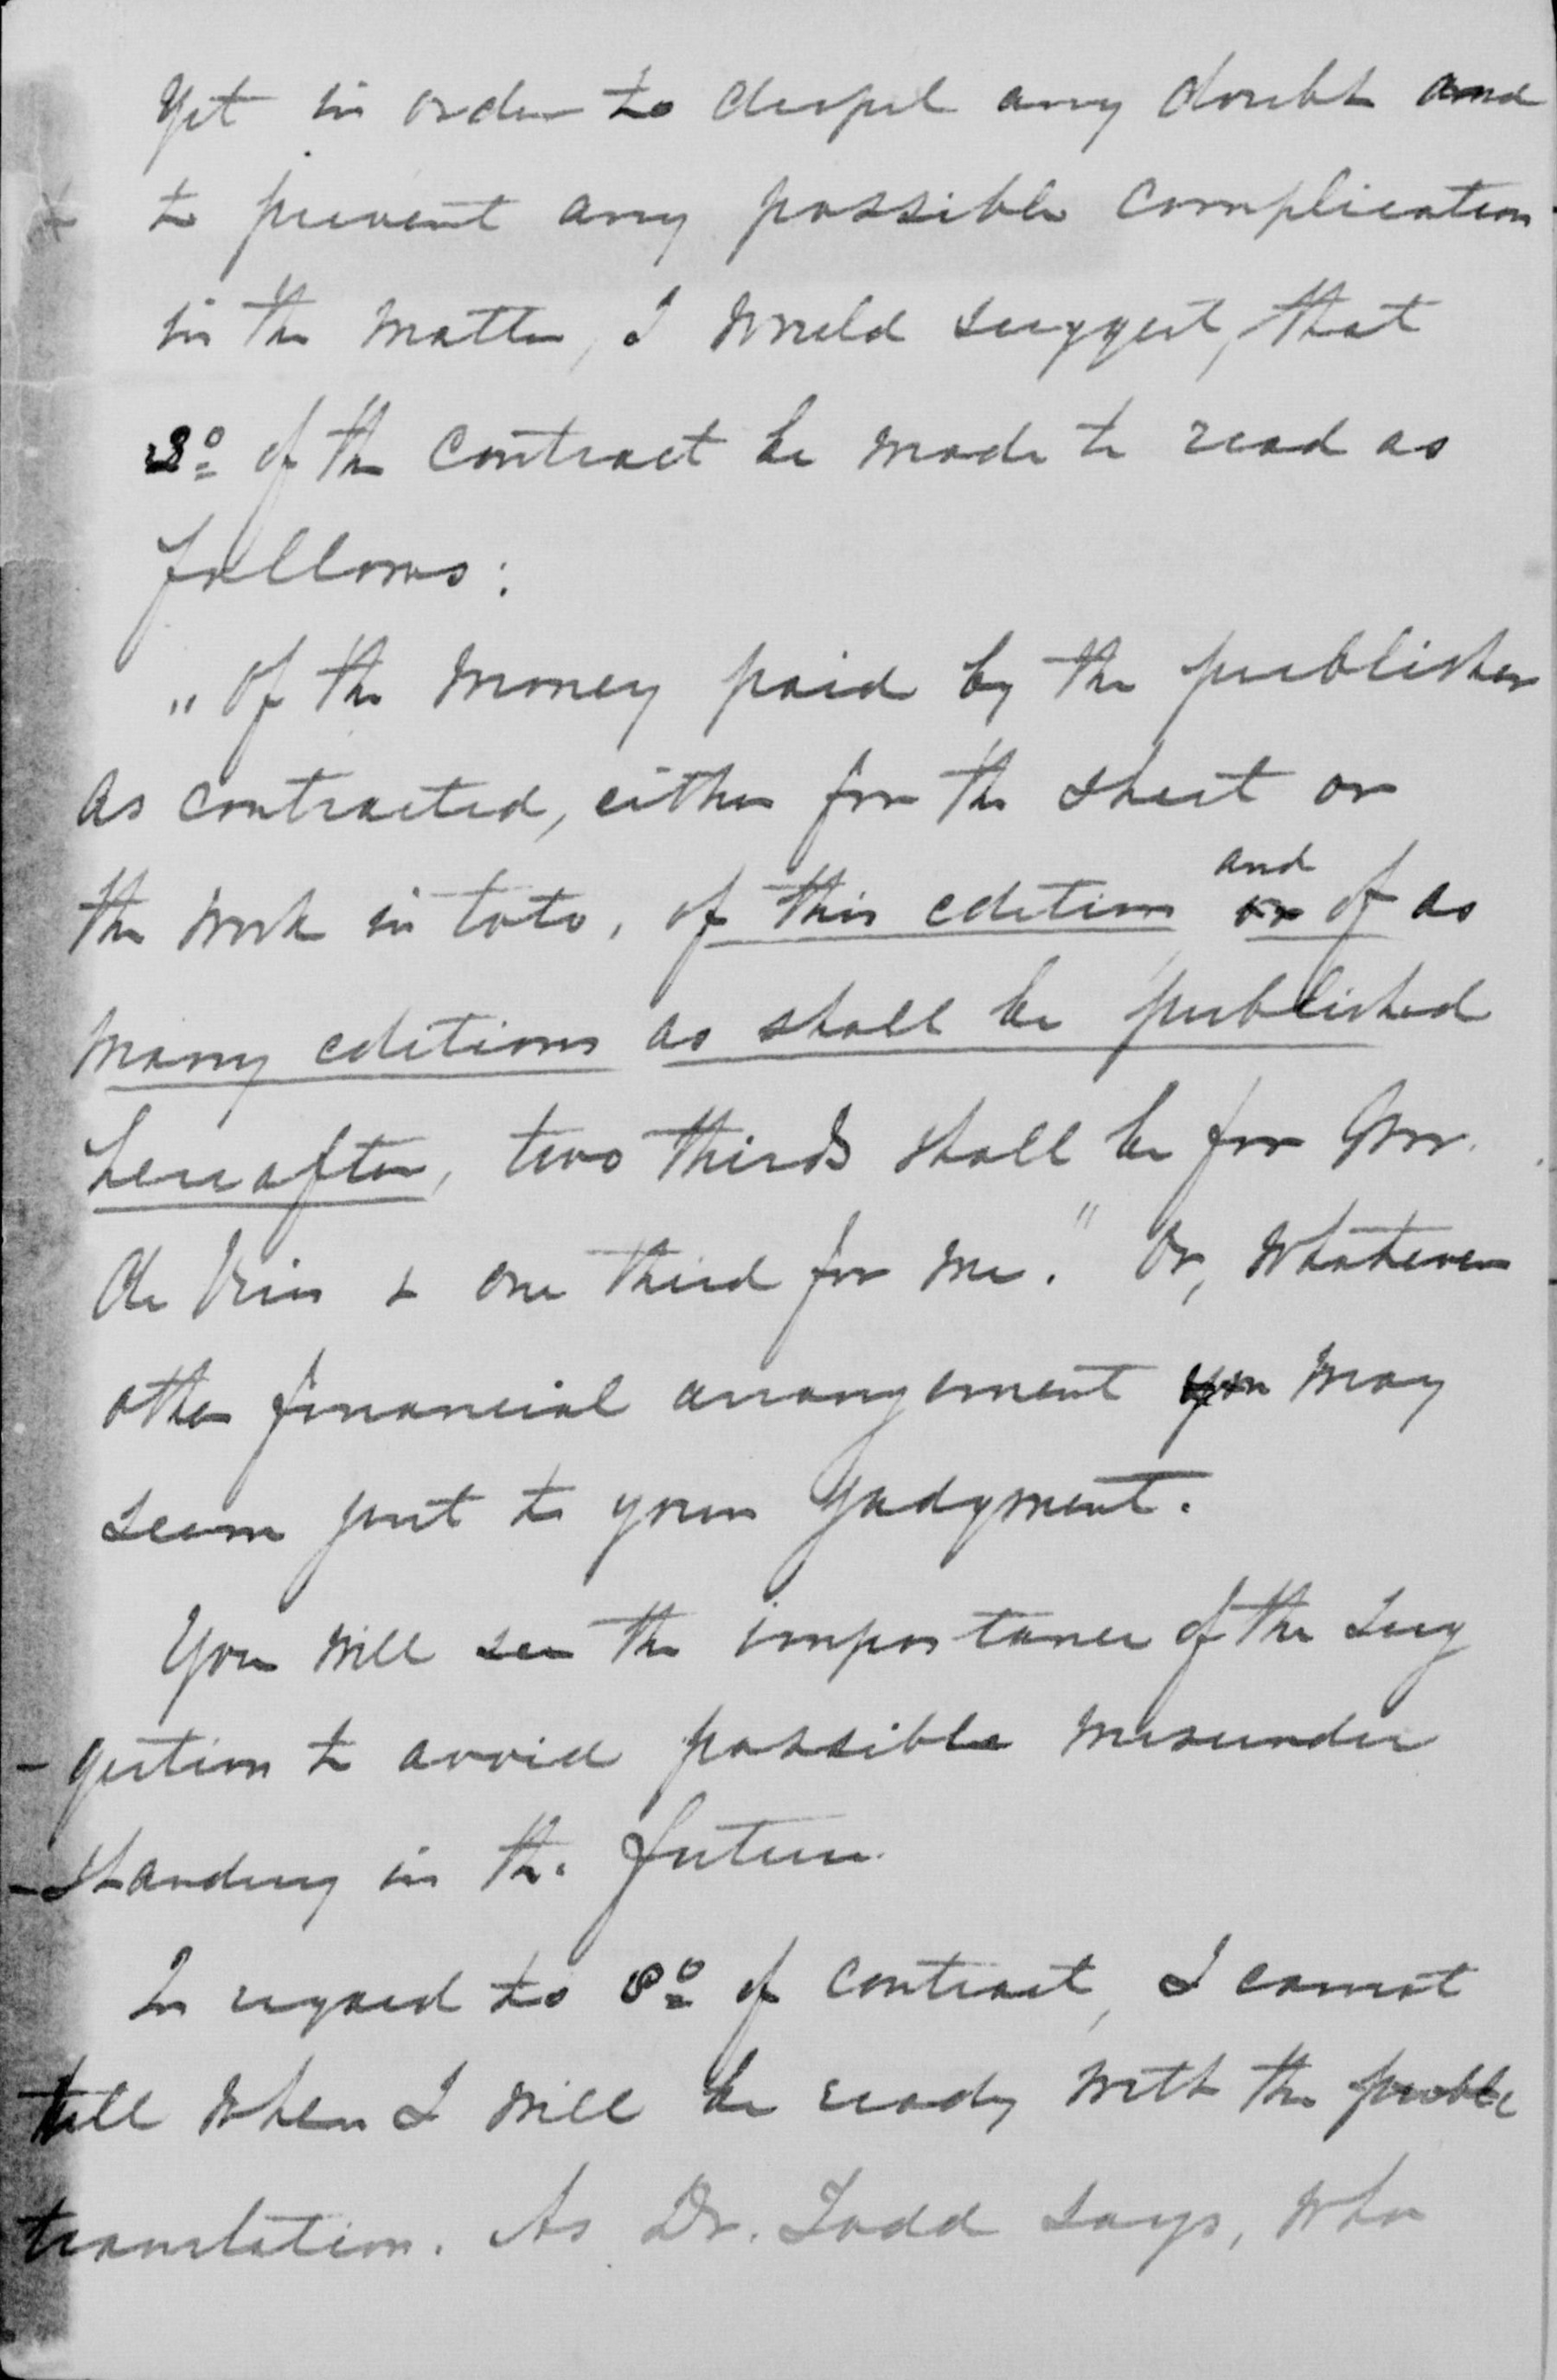 Yet in order to dispel any doubt and
to prevent any possible complication
in the matter, I would suggest, that
3º of the contract be made to read as
follows:
„ Of the money paid by the publisher
as contracted, either for the sheet or
the work in toto, of this edition and
or of as
many editions as shall be published
hereafter, two thirds shall be for Mr.
de Vries & one third for me." Or, whatever
other financial arrangement you may
seem just to your Judgment.
You will see the importance of the sug
-gestion to avoid possible misunder
-standing in the future.
In regard to 8º of contract, I cannot
tell when I will be ready with the
translation. As Dr. Todd says, who